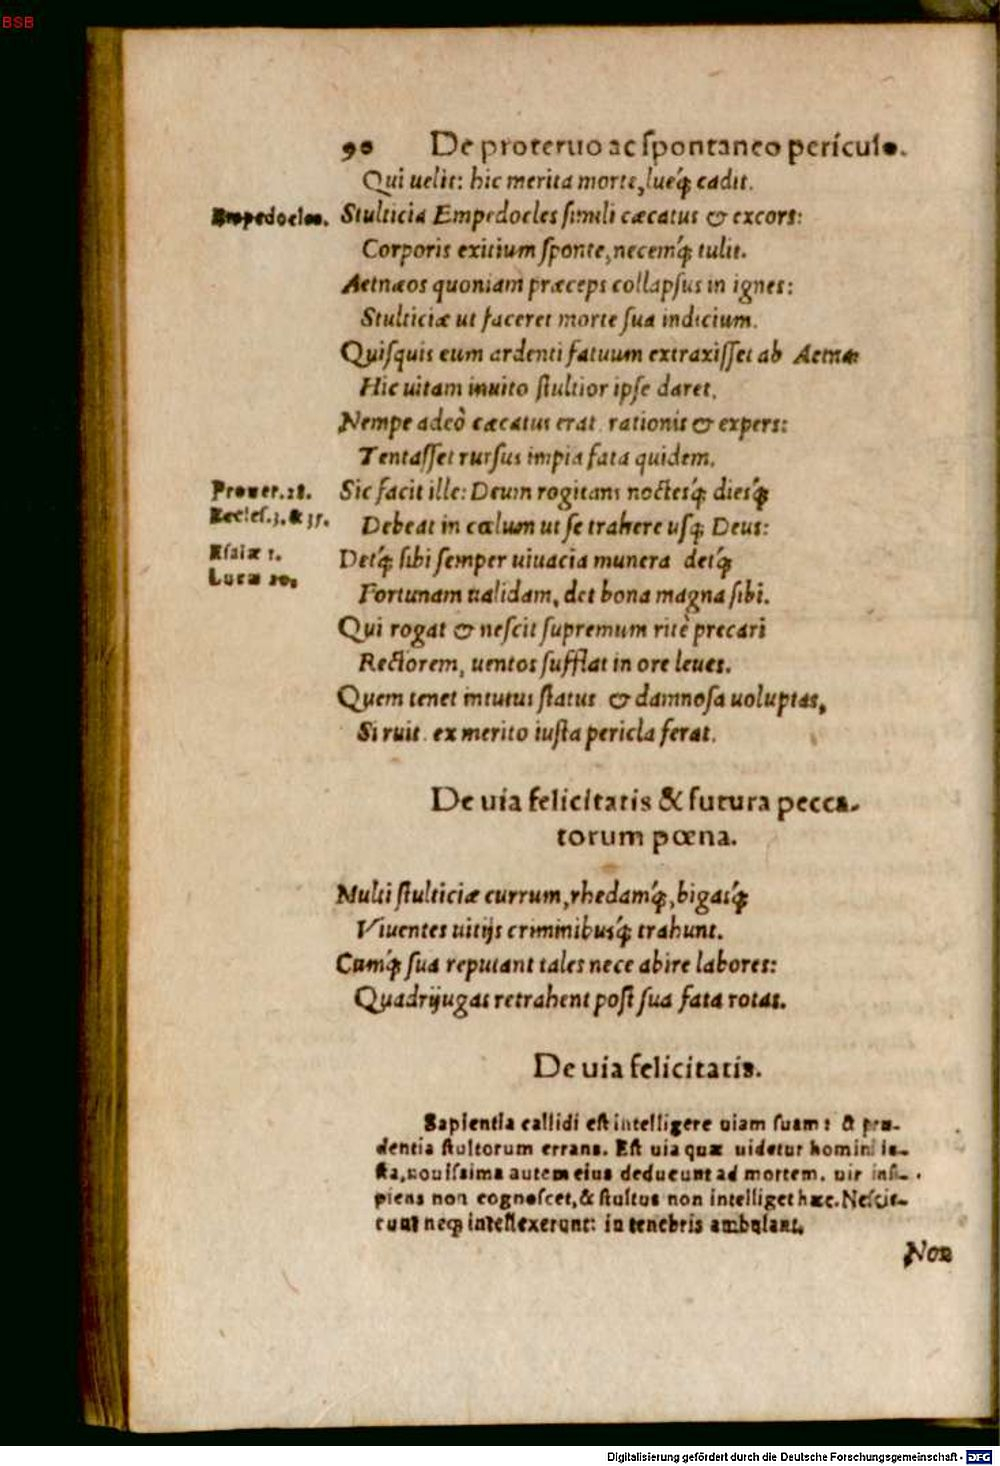 BSB
90 De proteruo ac ſpontaneo periculo.
Qui uelit: hic merita morte, lueq́; cadit.
Empedocles. Stulticia Empedocles ſimili cæcatus & excors:
Corporis exitium ſponte, necemq́; tulit.
Aetnæos quoniam præceps collapſus in ignes:
Stulticiæ ut faceret morte ſua indicium.
Quiſquis eum ardenti fatuum extraxiſſet ab Aetna
Hic uitam inuito ſtultior ipſe daret.
Nempe adeò cæcatus erat rationis & expers:
Tentaſſet rurſus impia fata quidem.
Prouer. 28. Sic facit ille: Deum rogitans noctesq́; diesq́;
Eccleſ. 3. & 35. Debeat in cœlum ut ſe trahere uſq; Deus:
Eſaiæ 1. Detq́; ſibi ſemper uiuacia munera detq́;
Lucæ 10. Fortunam ualidam, det bona magna ſibi.
Qui rogat & neſcit ſupremum ritè precari
Rectorem, uentos ſufflat in ore leues.
Quem tenet intutus ſtatus & damnoſa uoluptas,
Si ruit. ex merito iuſta pericla ferat.
De uia felicitatis & futura pecca-
torum pœna.
Multi ſtulticiæ currum, rhedamq́;, bigasq́;
Viuentes uitijs criminibusq́; trahunt.
Cumq́; ſua reputant tales nece abire labores:
Quadrijugas retrahent poſt ſua fata rotas.
De uia felicitatis.
Sapientia callidi eſt intelligere uiam ſuam: & pru-
dentia ſtultorum errans. Eſt uia quæ uidetur homini iu-
ſta, nouiſſima autem eius deducunt ad mortem. uir inſi-
piens non cognoſcet, & ſtultus non intelliget hæc. Neſcie-
runt neq; intellexerunt: in tenebris ambulant.
Non
Digitalisierung gefördert durch die Deutsche Forschungsgemeinschaft - DFG